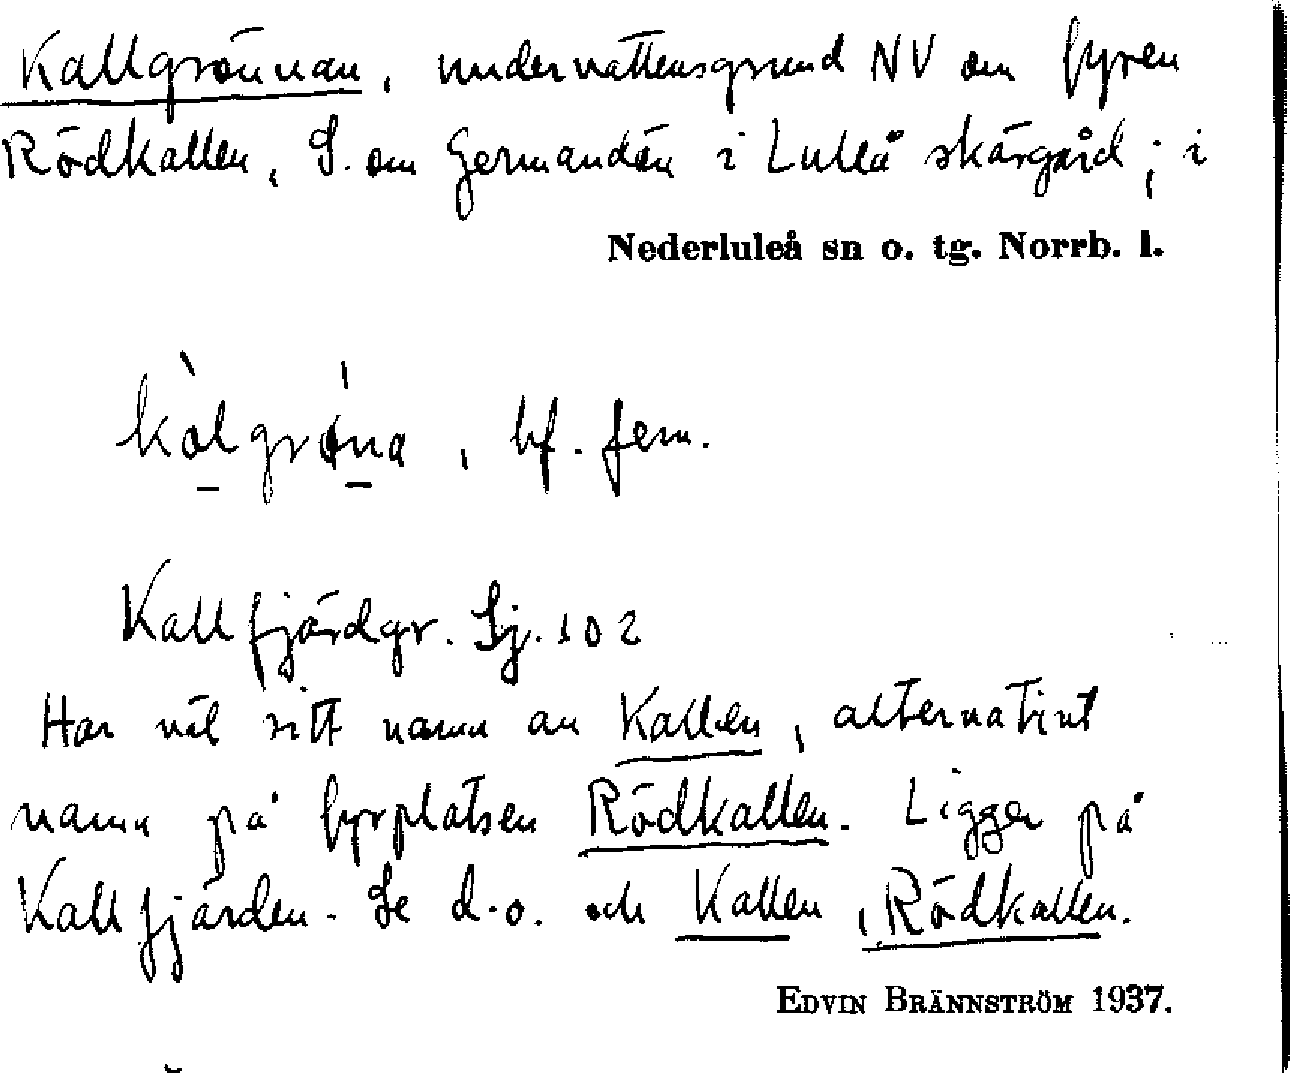 Kallgrönnan, undervattensgrund NV om fyren
Rödkallen, S. om Germandön i Luleå skärgård; i
Nederluleå sn o. tg. Norrb. l.
kàlgrö́na, bf. fem.
Kallfjärdgr. Sj. 102
Har väl sitt namn av Kallen, alternativt
namn på fyrplatsen Rödkallen. Ligger på
Kallfjärden. Se d.o. och Kallen, Rödkallen.
EDVIN BRÄNNSTRÖM 1937.